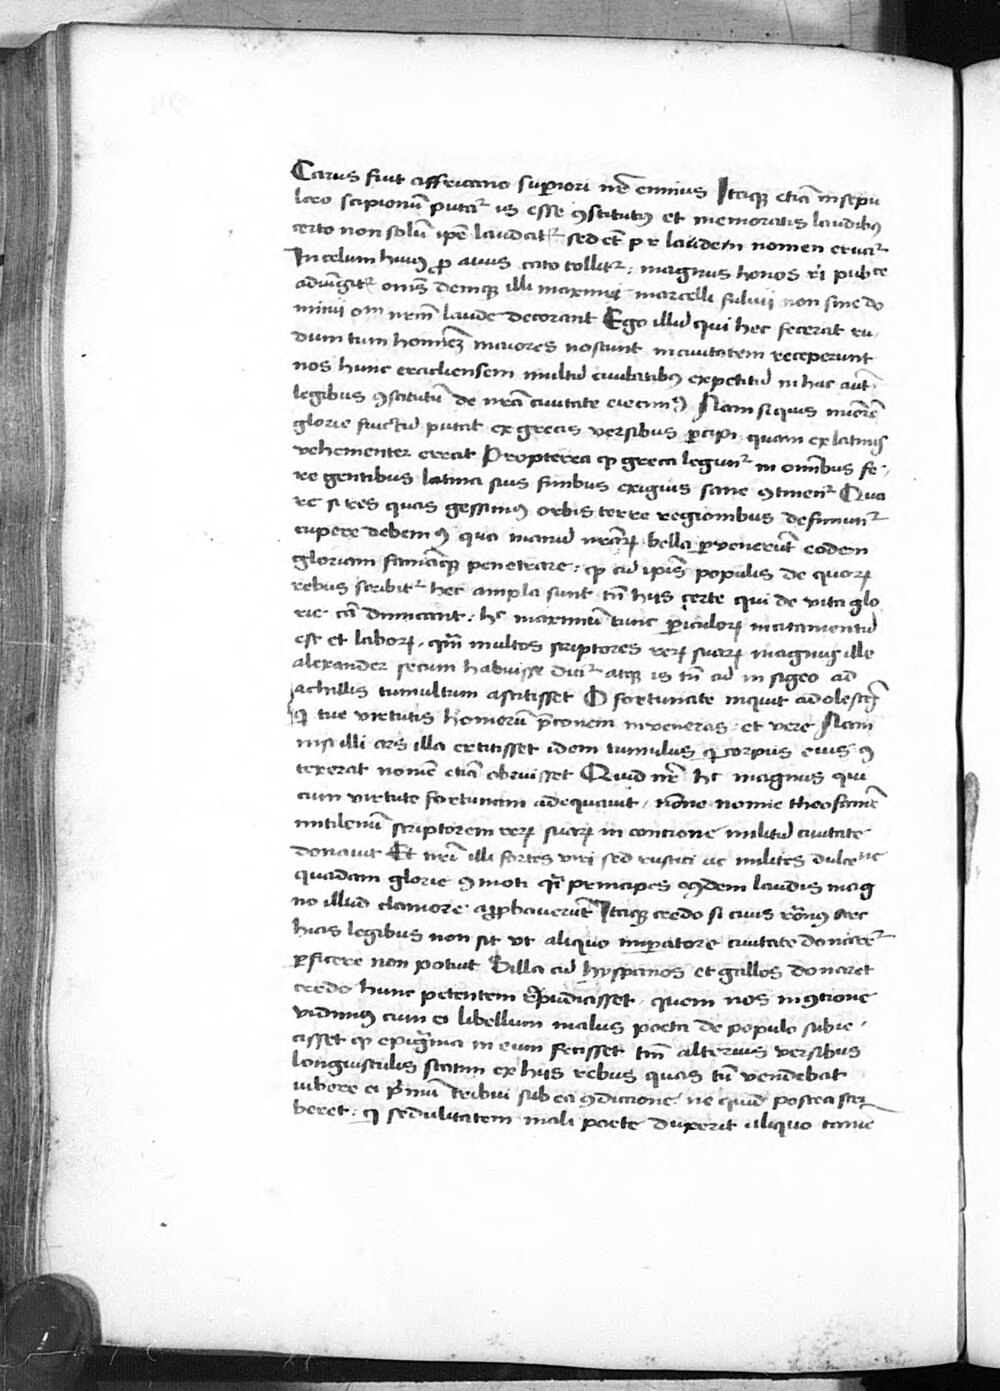 Carus fuit affricano superiori nr̄ ennius Itaq̨ etiā in sepu
lcro scipionū putat᷑ is esse ꝯstitutꝰ et memoratis laudibꝰ
certo non solū ip̄e laudat᷑ sed et̄ p r laudem nomen ercat᷑
In celum huiꝰ ꝓ auus cato tollit᷑ . magnus honos ri pub ce
adiūgit᷑ om̄s deniq̨ illi maximi marcelli fuluii non sine co
muni om nr̄m laude decorant Ego illud qui hec fecerat ru
dum tum hominez maiores nostrint in ciuitatem receperunt
nos hunc eracliensem multid ciuitatibꝰ expetitū in hac aut̄
legibus ꝯstitutū de nrā ciuitate eiecimꝰ) Nam si quis miorē
glorie fructū putat ex grecis versibus ꝑcipi quam ex latinis
vehementer errat Propterea ꝙ greca legunt᷑ in omībus fe
re gentibus latina suis finibus exiguis sane ꝯtinent᷑ Qua
re si res quas gessimꝰ orbis terre regionibus definiunt᷑
cupere debemꝰ quo manuū nr̄arꝝ bella ꝑvenerūt eodem
gloriam famāq̨ penetrare . ꝙ cū ipīs populis de quorꝝ
rebus scribit᷑ hec ampla sunt tn̄ hijs certe qui de vita glo
rie cā dimicant . hc̄ maximū tunc ꝑiculorꝝ incitamentū
est et laborꝝ . qm̄ multos scriptores rerꝝ suarꝝ magnus ille
alexander secum habuisse dicit᷑ atq̨ is tn̄ cū in sigeo ad
achillis tumultum astitisset O fortunate inquit adolescēs
q̨ tue virtutis homerū p̄conem inveneras . et vere Nam
nisi illi ars illa extitisset idem tumulus qi corpus eius ꝯ
texerat nomē etiā obruisset Quid nr̄ hc̄ magnus qui
cum virtute fortunam adequauit . nōne nomie theofanē
mitilenū scriptorem rerꝝ suarꝝ in concione militū ciuitate
donauit Et nr̄i illi fortes viri sed rustici ac milites dulce ne
quadam glorie ꝯmoti qi principes eiꝰdem laudis mag
no illud clamore aꝓbauerūt Itaq̨ credo si ciuis rōnꝰ arc
hias legibus non sit vt aliquo imꝑatore ciuitate donaret᷑
ꝑficere non potuit Silla cū hyspanos et gallos donaret
credo hunc petentem repudiasset . quem nos in ꝯtione
vidimꝰ cum ei libellum malus poeta de populo subie
cisset ꝙ epigr̄ma in eum fecisset tm̄ alterius versibus
longiusculis statim ex hijs rebus quas tū vendebat
iubere ei p̄miū tribui sub ea ꝯdicione . ne quid postea scri
beret . q̨ sedulitatem mali poete duxerit aliquo tame